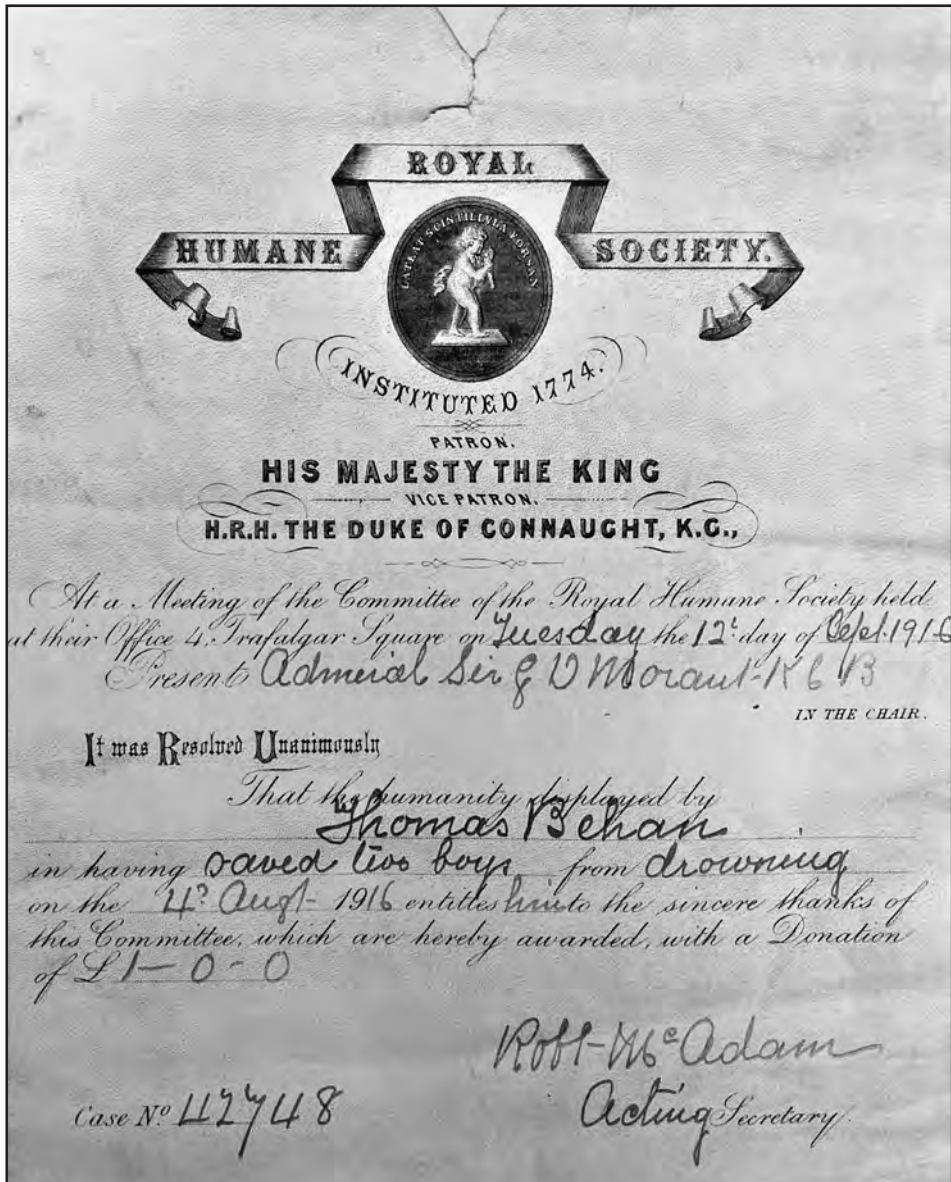 ROYAL
HUMANE SOCIETY.
LATEAT SCINTILLVLA FORSAN
INSTITUTED 1774.
PATRON.
HIS MAJESTY THE KING
VICE PATRON.
H.R.H. THE DUKE OF CONNAUGHT, K.G.,
At a Meeting of the Committee of the Royal Humane Society held
at their Office 4. Trafalgar Square on Tuesday the 12t day of Sept. 1916
Present Admiral Sir G D Morant K C B
IN THE CHAIR.
It was Resolved Unanimously
That the humanity displayed by
Thomas Behan
in having saved two boys from drowning
on the 4th Augt- 1916 entitles him to the sincere thanks of
this Committee, which are hereby awarded, with a Donation
of £ 1-0-0
Robt- Mc Adam
Case No. 42748 Acting Secretary.